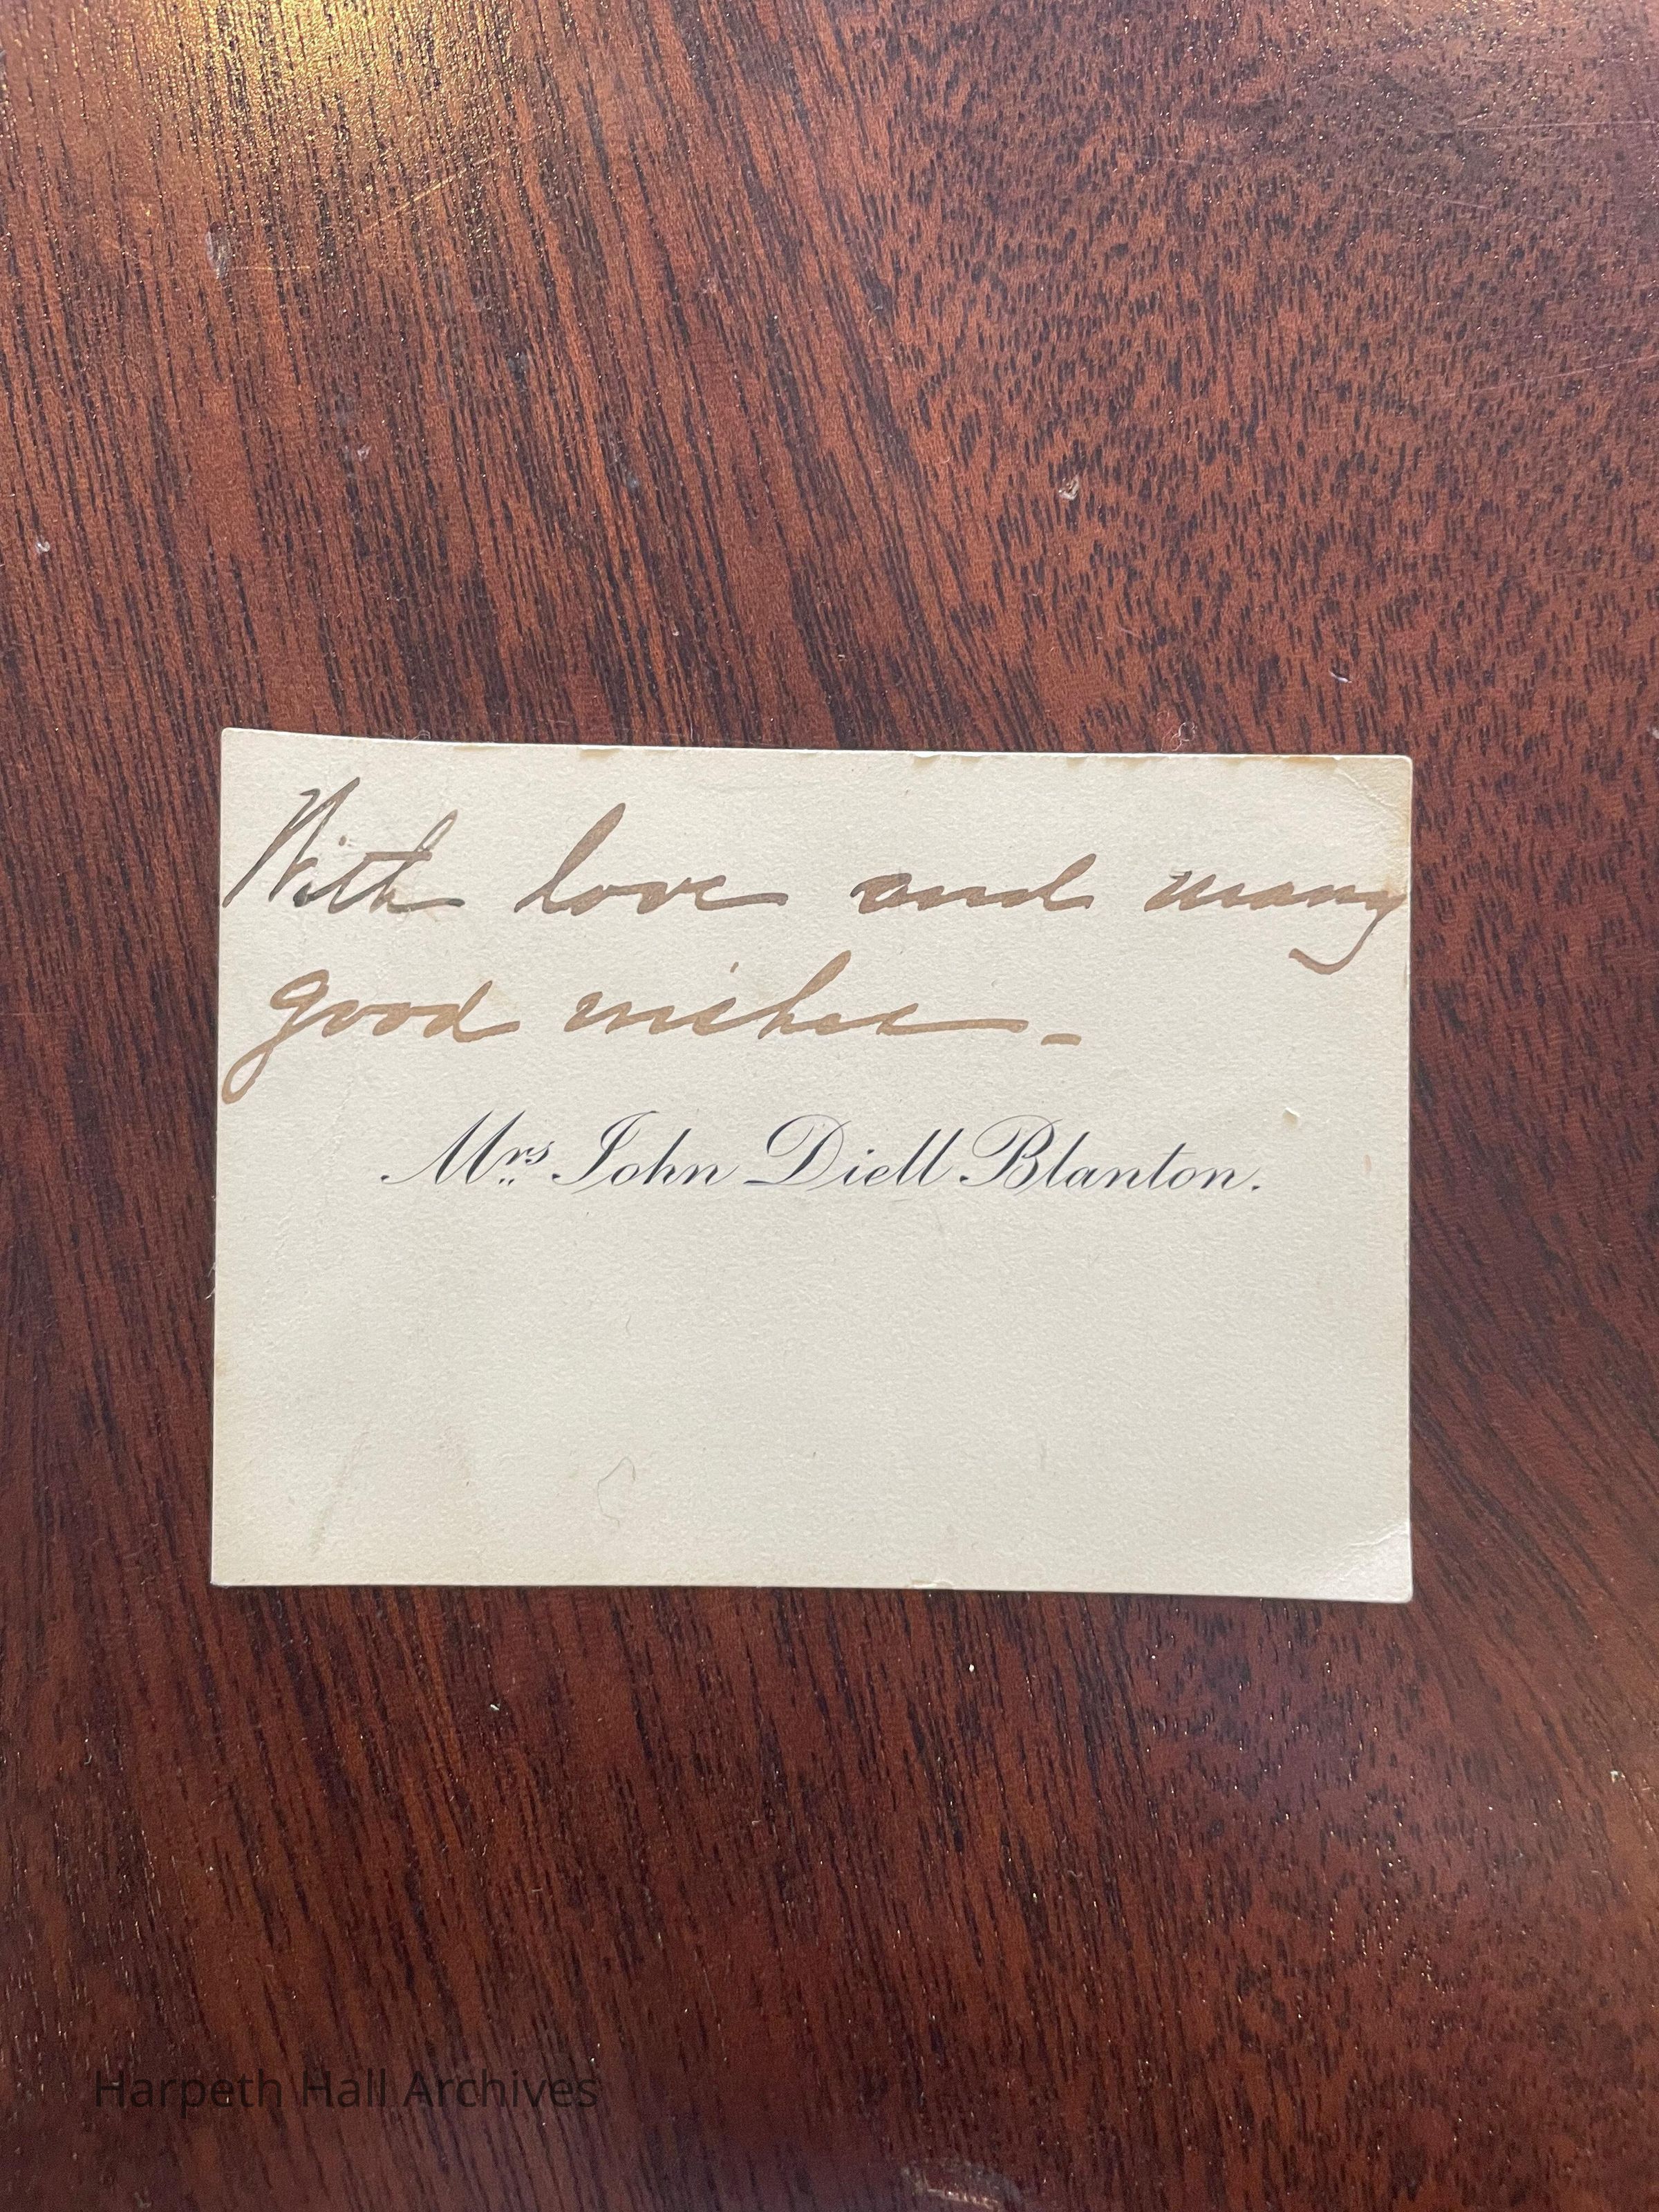 With love and many
good wishes -
Mrs. John Diell Blanton.
Harpeth Hall Archives